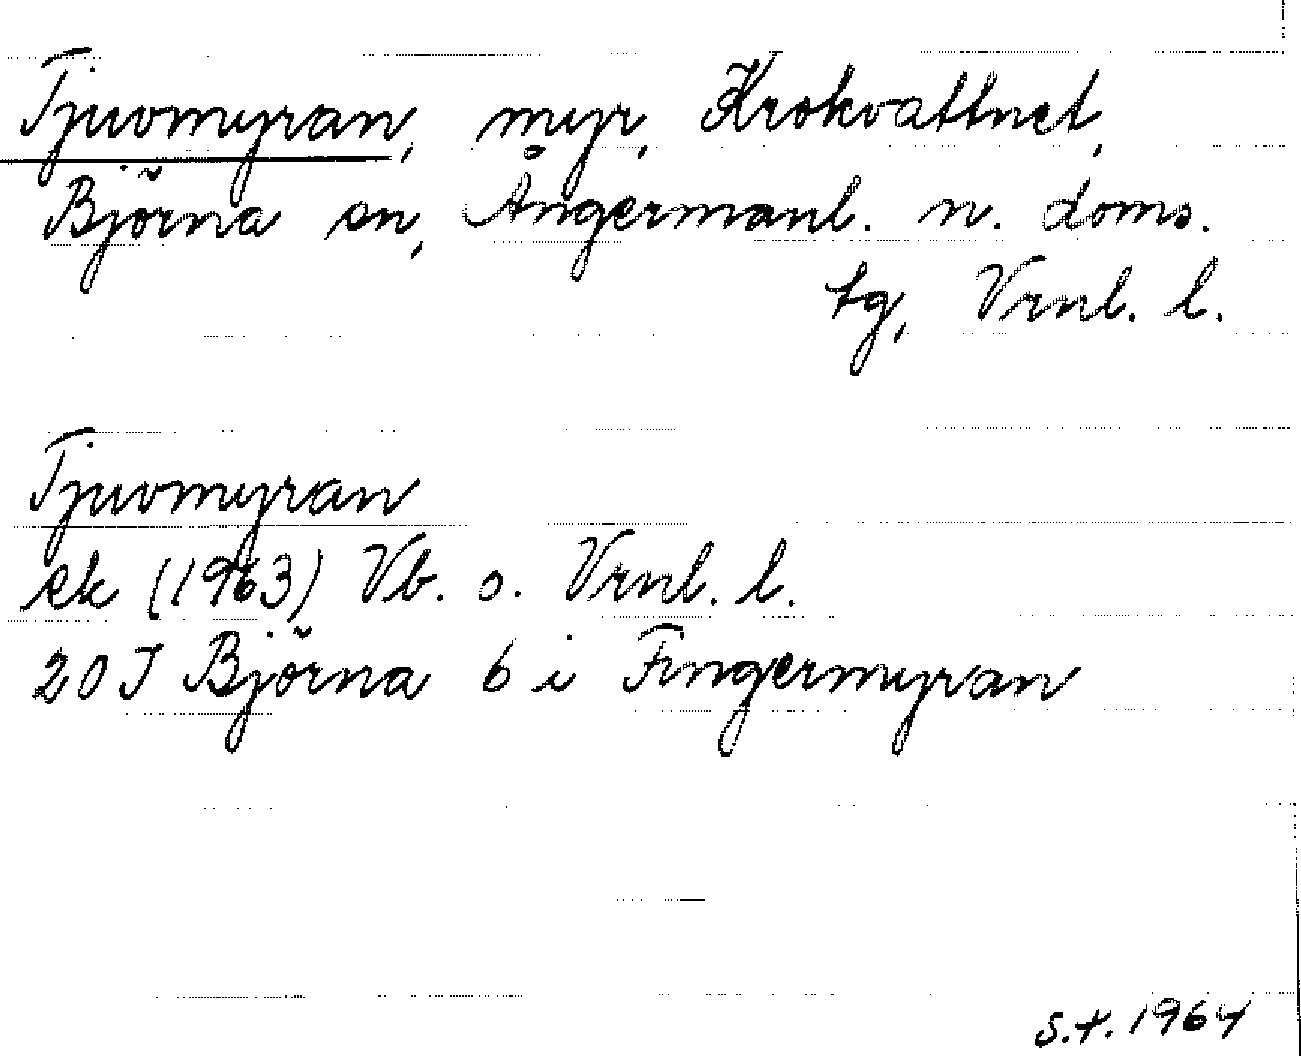 Tjuvmyran, myr, Krokvattnet,
Björna sn, Ångermanl. n. doms.
tg, Vrnl. l.
Tjuvmyran
ek (1963) Vb. o. Vrnl. l.
20 I Björna 6 i Fingermyran
S.t. 1964